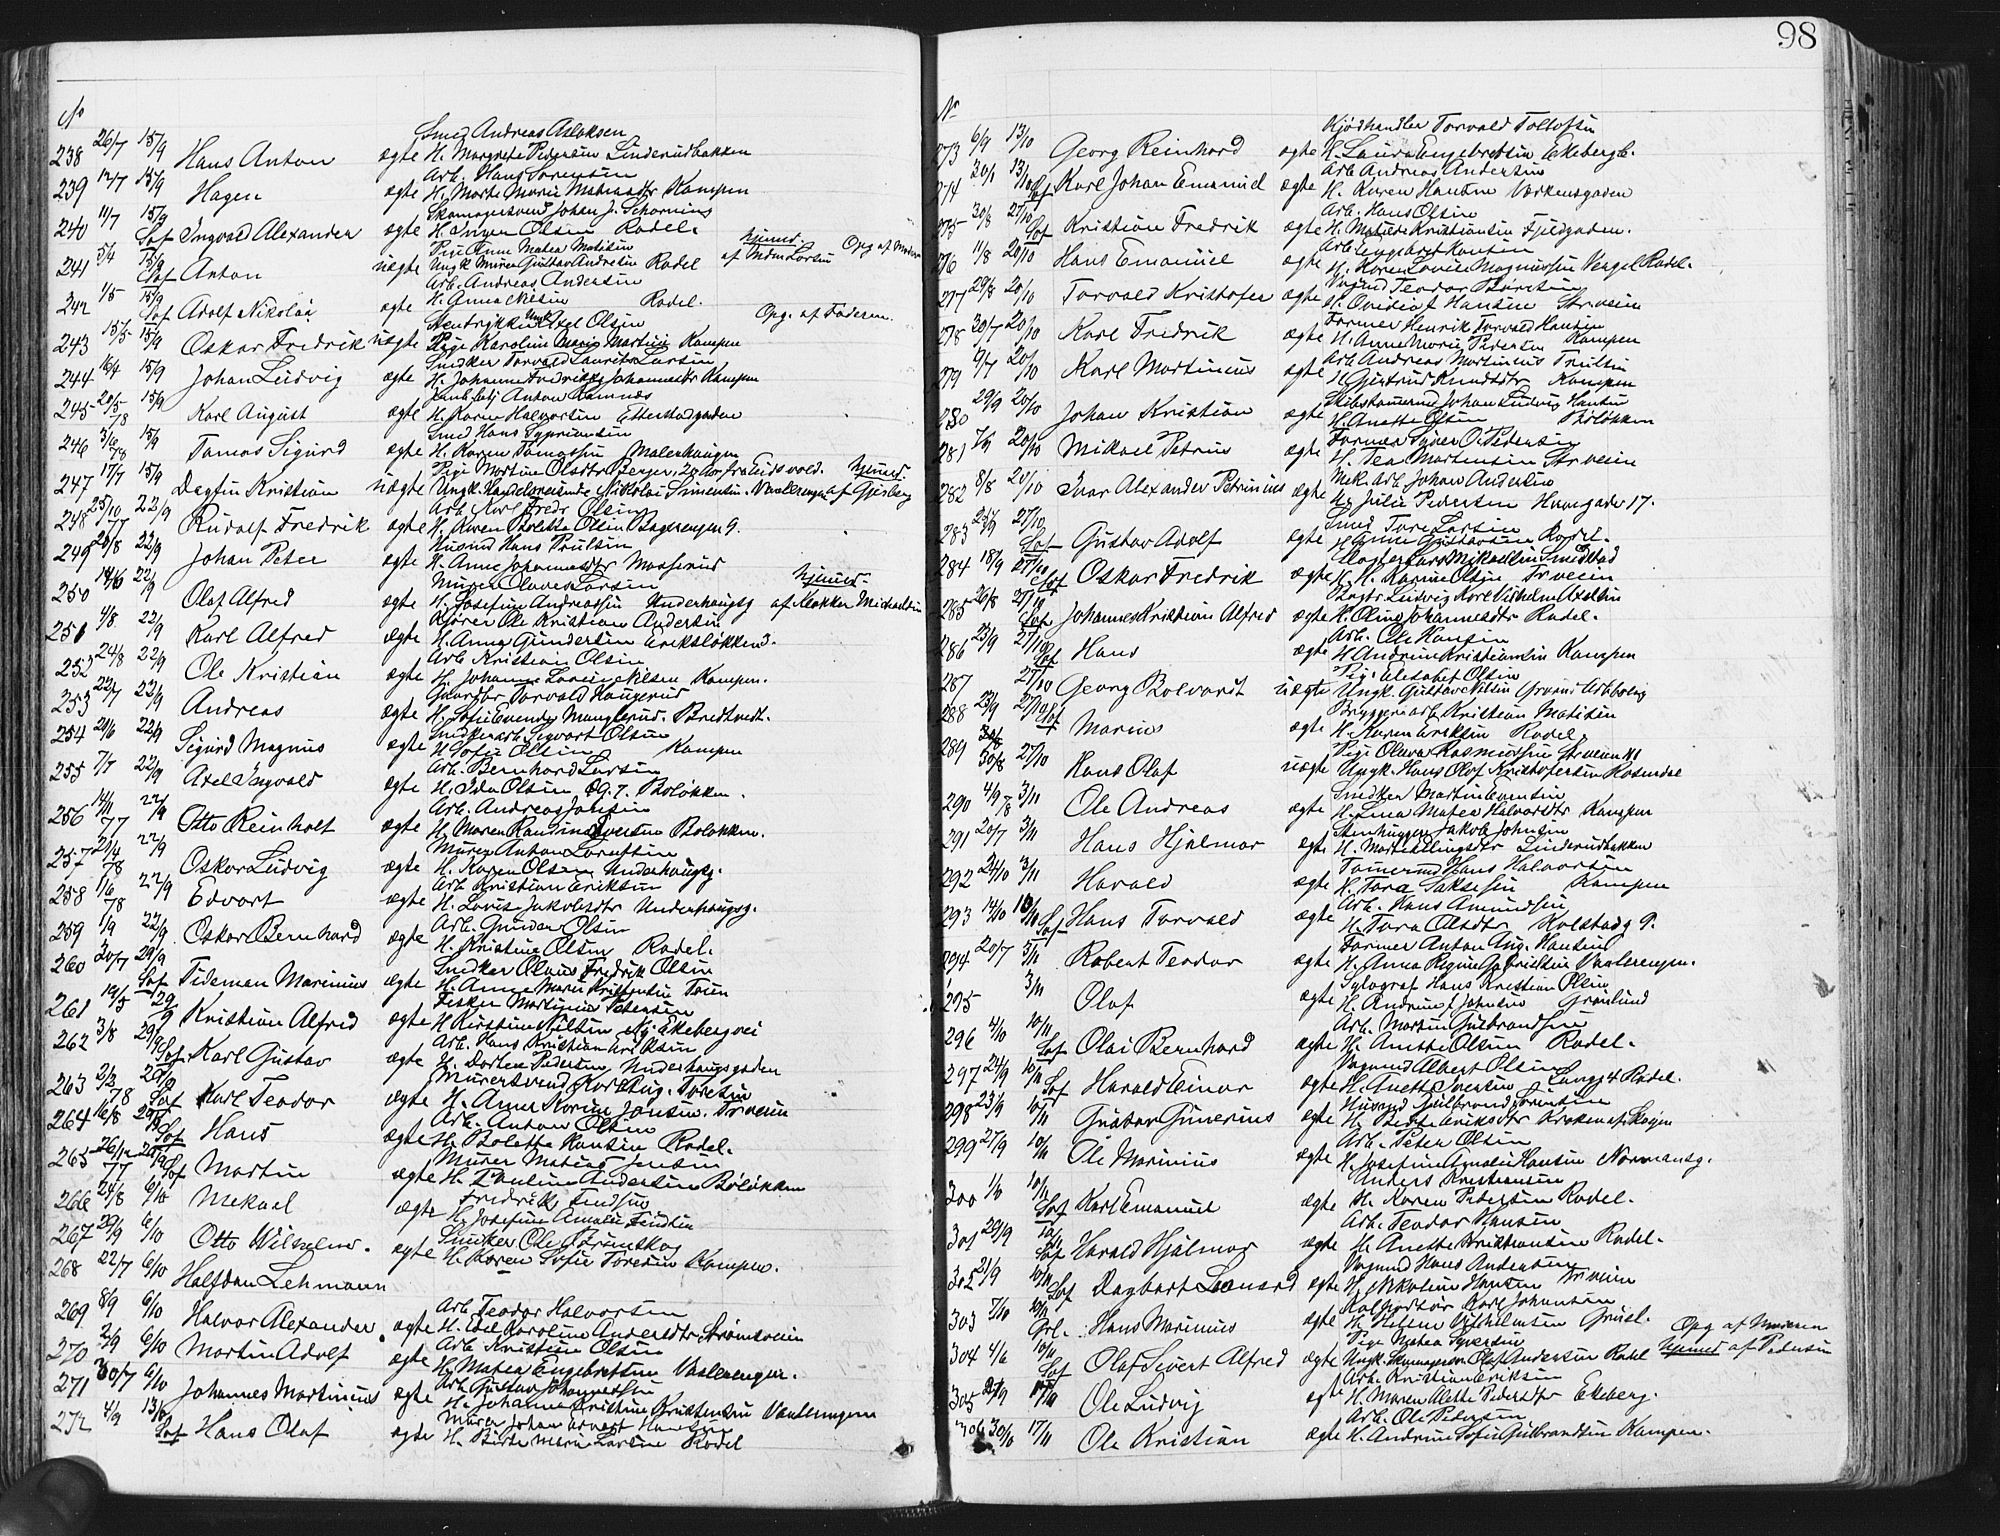 No
Smed Andreas Aslaksen
238 26/7 15/9 Hans Anton ægte H. Margrete Pedersen Linderudbakken
Arb. Hans Torensen
239 12/7 15/9 Hagen ægte H. Marte Marie Kampen
Skomagersvend Johan J.
240 11/7 15/9 Sof Ingvald Alexander ægte H. Inger Olsen Rodel.
Pige Anne Matea Matisen
241 5/4 15/9 Sof Anton uægte Ungk. Murer Gustav Andresen Rodel hjemd. af Mdm Larsen Opg af Moderen
Arb. Andreas Andersen
242 1/5 15/9 Sof Adolf Nikolai ægte H. Anna Nilsen Rodel.
Stentrykker Ungk Axel Olsen Opg. af Faderen
243 15/5 15/9 Oskar Fredrik uægte Pige Karoline Marie Martine Kampen
Snedker Torvald Laurits Larsen
244 16/4 15/9 Johan Ludvig ægte H. Johanne Fredrikke Johannesdtr Kampen
Anton Ramnæs
245 20/5 78 15/9 Karl August ægte H. Karen Halvorsen Etterstadgaden
Smed Hans Syvriensen
246 3/6 78 15/9 Tomas Sigurd ægte H. Karen Tomassen Malerhaugen
Pige Martine Olsdtr Berger, 20 Aar fra Eidsvold.
247 17/7 15/9 Dagfin Kristian uægte Ungk. Handelsreisende Nikolai Simensen. Vaalerengen hjemd. af Gjesberg
Arb. Karl Fredr Olsen
248 25/10 77 22/9 Rudolf Fredrik ægte H. Karen Bolette Olsen Bagerengen 9.
Husmd Hans Poulsen
249 20/8 22/9 Johan Peter ægte H. Anne Johannesdtr
Murer Olaves Larsen
250 14/6 22/9 Olaf Alfred ægte H. Josefine Andreassen Underhaugsg hjemd. af Klokker Michaelsen
Kjører Ole Kristian Andersen
251 4/8 22/9 Karl Alfred ægte H. Anna Gundersen Eriksløkken 3.
Arb Kristian Olsen
252 24/8 22/9 Ole Kristian ægte H. Johanne Lovise Nilsen Kampen.
Gaardbr Torvald Haugerud
253 22/7 22/9 Andreas ægte H. Sofie Evendr Manglerud. Bredtvedt.
Snedkerarb. Sigvart Olsen
254 20/6 22/9 Sigurd Magnus ægte H. Sofie Olsen Kampen
Arb. Bernhard Larsen
255 7/7 22/9 Axel Ingvald ægte H. Ida Olsen Bg. 7. Bøløkken.
Arb. Andreas Johnsen
256 14/11 77 22/9 Otto Reinholt ægte H. Maren Iversen Bøløkken.
Murer Anton Lorentsen
257 21/4 78 22/9 Oskar Ludvig ægte H. Karen Olsen Underhaugsg.
Arb Kristian Eriksen
258 1/6 78 22/9 Edvart ægte H. Lovise Jakobsdtr Underhaugsg.
Arb. Gunder Olsen
259 1/9 22/9 Oskar Bernhard ægte H. Kristine Olsen Rodel.
Snedker Olaus Fredrik Olsen
260 20/7 29/9 Sof Tideman Marinius ægte H. Anne Marie Kristensen Tøien
Fisker Martinius Petersen
261 19/5 29/9 Kristian Alfred ægte H. Kirstine Nilsen Ny Ekebergvei
Arb. Hans Kristian Eriksen
262 3/8 29/9 Sof. Karl Gustav ægte H. Dortea Pedersen Underhaugsgaden
Murersvend Karl Aug. Toresen
263 2/2 78 29/9 Sof Karl Teodor ægte H. Anne Karine Jonsen. Strveien
Arb. Anton Olsen
264 16/8 29/9 Sof Hans ægte H. Bolette Hansen Rodel.
Murer Matias Jensen
265 26/12 77 29/9 Sof Martin ægte H. Pauline Andersen Bøløkken
Fredrik Fendsen
266 24/8 6/10 Mekael ægte H. Josefine Amalie Fendsen
Snedker Ole Bruneskog
267 29/9 6/10 Otto Wilhelm. ægte H. Karen Sofie Toresen Kampen.
268 22/7 6/10 Halfdan Lehmann
Arb. Teodor Halvorsen
269 8/9 6/10 Halvor Alexander. ægte H. Edel Karoline Andersdtr, Strømsveien
Arb. Kristian Olsen
270 2/9 6/10 Martin Adolf ægte H. Matea Engebretsen Vaalerengen.
Arb. Gustav Johannessen
271 30/7 6/10 Johannes Martinius ægte H. Johanne Kristine Kristensen Vaalerengen
Murer Johan Edvart Hansen
272 4/9 13/10 Sof Hans Olaf ægte H. Birte Marie Larsen Rodel
98
Nr
Kjødhandler Torvald Toltofsen
273 6/9 13/10 Georg Reinhard ægte H. Laura Engebretsen Ekebergb.
Arb Andreas Andersen
274 20/1 13/10 Sof Karl Johan Emanuel ægte H. Karen Hansen Værkensgaden
Arb. Hans Olsen
275 30/8 27/10 Sof Kristian Fredrik ægte H. Matilde Kristiansen Fjeldgaden.
Arb. Engebret Hansen
276 11/8 20/10 Hans Emanuel ægte H. Karen Lovise Magnussen Vengel Rodel.
Vognmd Teodor Børesen
277 29/8 20/10 Torvald Kristofer ægte H. Ovidia J Hansen Strveien
Former Henrik Torvald Hansen
278 30/7 20/10 Karl Fredrik ægte H. Anne Marie Pedersen Kampen
Arb Andreas Martinius Trulsen
279 9/7 20/10 Karl Martinius ægte H. Gjertrud Knudsdtr Kampen
Skibstømmermd Johan Ludvig Hansen
280 29/9 20/10 Johan Kristian ægte H. Anette Olsen Bøløkken
Former Syver O. Pedersen
281 7/9 20/10 Mikael Petrus ægte H. Tea Mortensen Strveien
Mek. Arb. Johan Andersen
282 8/8 20/10 Ivar Alexander Petrinius ægte H. Julie Pedersen Heimgade 17.
Smed Tore Larsen
283 27/10 Sof Gustav Adolf ægte H. Anne Gustavsen Rodel.
Slagter Lars Mikaelsen Smedstad
284 18/9 27/10 Sof Oskar Fredrik ægte H. H. Karine Olsen Strveien
Ludvig Karl Vilhelm Axelsen
285 26/8 27/10 Sof Johannes Kristian Alfred ægte H. Oline Johannesdtr Rodel.
Arb. Ole Hansen
286 23/9 27/10 Sof Hans ægte H. Andrine Kristiansen Kampen
Pige Elesabet Olsen
287 27/10 Georg Bolvardt uægte Ungk. Gustav Nilsen Arbbolig
Bryggeriarb. Kristian Matisen
288 23/9 27/10 Sof Marius ægte H. Karen Eriksen Rodel.
Pige Olava Rasmussen Strveien
289 30/8 27/10 Hans Olaf uægte Ungk. Hans Olaf Kristofersen Rosendal
Snedker Martin Evensen
290 4/9 78 3/11 Ole Andreas ægte H. Lina Matea Halvorsdtr Kampen
Stenhugger Jakob Johnsen
291 20/7 3/11 Hans Hjalmar ægte H. Marte Elingsdtr Linderudbakken
Tømmermd Hans Halvorsen
292 24/10 3/11 Harald ægte H. Tora Saksesen Kampen
Arb. Hans Amundsen
293 14/10 Sof Hans Torvald ægte H. Tora Olsdtr Holstadg 9.
Former Anton Aug. Hansen
294 20/7 3/11 Robert Teodor ægte H. Anna Regine Gabrielsen Vaalerengen.
Xylograf Hans Kristian Olsen
295 3/11 Olaf ægte H. Andrine J Johnsen Grønlund
Arb. Martin Gulbrandsen
296 4/10 10/11 Sof Olai Bernhard ægte H. Anette Olsen Rodel.
Vognmd Albert Olsen
297 24/9 10/11 Sof Harald Einar ægte H. Anette Iversen Langg 4 Rodel.
Husmd Gulbrand Sørensen
298 23/9 10/11 Gustav Gunerius ægte H. Berte Eriksdtr Kroken af Skøien
Arb. Peter Olsen
299 27/9 10/11 Ole Marinius ægte H. Josefine Amalie Hansen Normansg.
Anders Kristiansen
300 1/8 10/11 Sof Karl Emanuel ægte H. Karen Pedersen Rodel.
Arb. Teodor Hansen
301 20/9 10/11 Sof Harald Hjalmar ægte H. Anette Kristiansen Rodel.
Vognmd Hans Andersen
302 21/9 10/11 Sof Dagbart Leonard ægte H. Nikoline Hansen Strveien
Kolportør Karl Johansen
303 7/10 10/11 Grl. Hans Marinius ægte H. Helene Vilhelmsen Grøusl.
Pige Matea Syversen Opg af Moderen
304 4/6 10/11 Sof Olaf Sivert Alfred ægte Ungk. Skomager Olaf Andersen Rodel hjemmd af Pedersen
Arb. Kristian Eriksen
305 21/9 17/11 Ole Ludvig ægte H. Maren Alette Pedersdtr Ekeberg.
Arb. Ole Pedersen
306 30/10 17/11 Ole Kristian ægte H. Andrine Sofie Gulbrandsen Kampen.